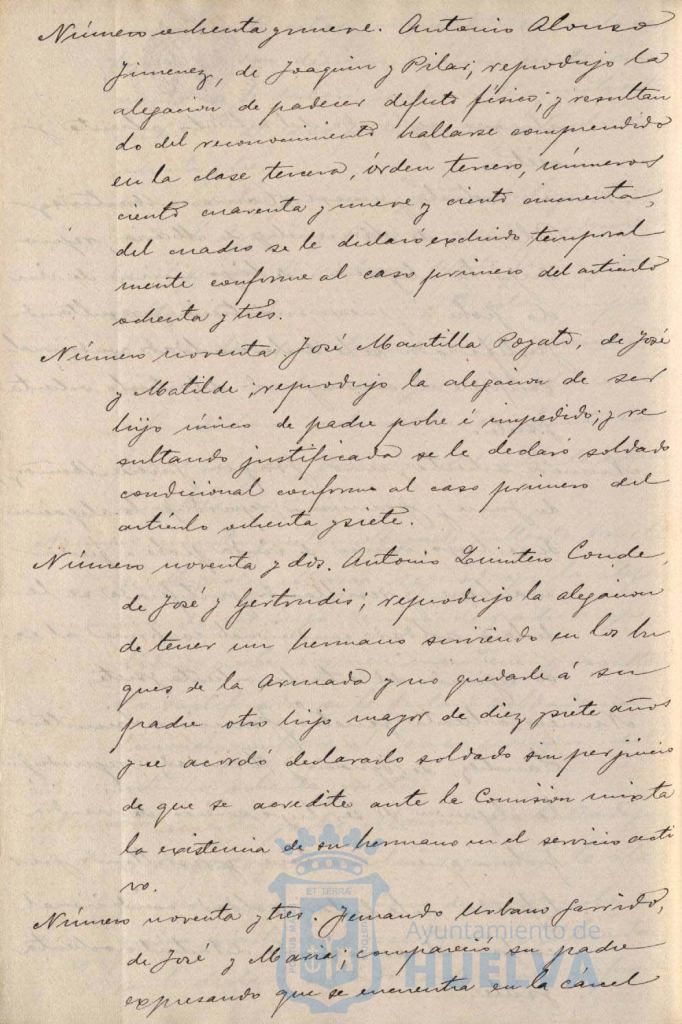 Número ochenta y nueve. Antonio Alonso
Jimenez, de Joaquin y Pilar; reprodujo la
alegacion de padecer defecto físico; y resultan
do del reconocimiento hallarse comprendido
en la clase tercera, órden tercero, números
ciento cuarenta y nueve y ciento cincuenta,
del cuadro se le declaró excluido temporal
mente conforme al caso primero del articulo
ochenta y tres.
Número noventa José Mantilla Pogato, de José
y Matilde; reprodujo la alegacion de ser
hijo único de padre pobre é impedido; y re
sultando justificada se le declaró soldado
condicional conforme al caso primero del
artículo ochenta y siete.
Número noventa y dos. Antonio Quintero Conde,
de José y Gertrudis; reprodujo la alegacion
de tener un hermano sirviendo en los bu
ques de la Armada y no quedarle á su
padre otro hijo mayor de diez y siete años
y se acordó declararlo soldado sin perjuicio
de que se acredite ante la Comision mixta
la existencia de su hermano en el servicio acti
vo.
Número noventa y tres. Fernando Urbano Garrido,
de José y Maria; compareció su padre
expresando que se encuentra en la cárcel
Ayuntamiento de
HUELVA